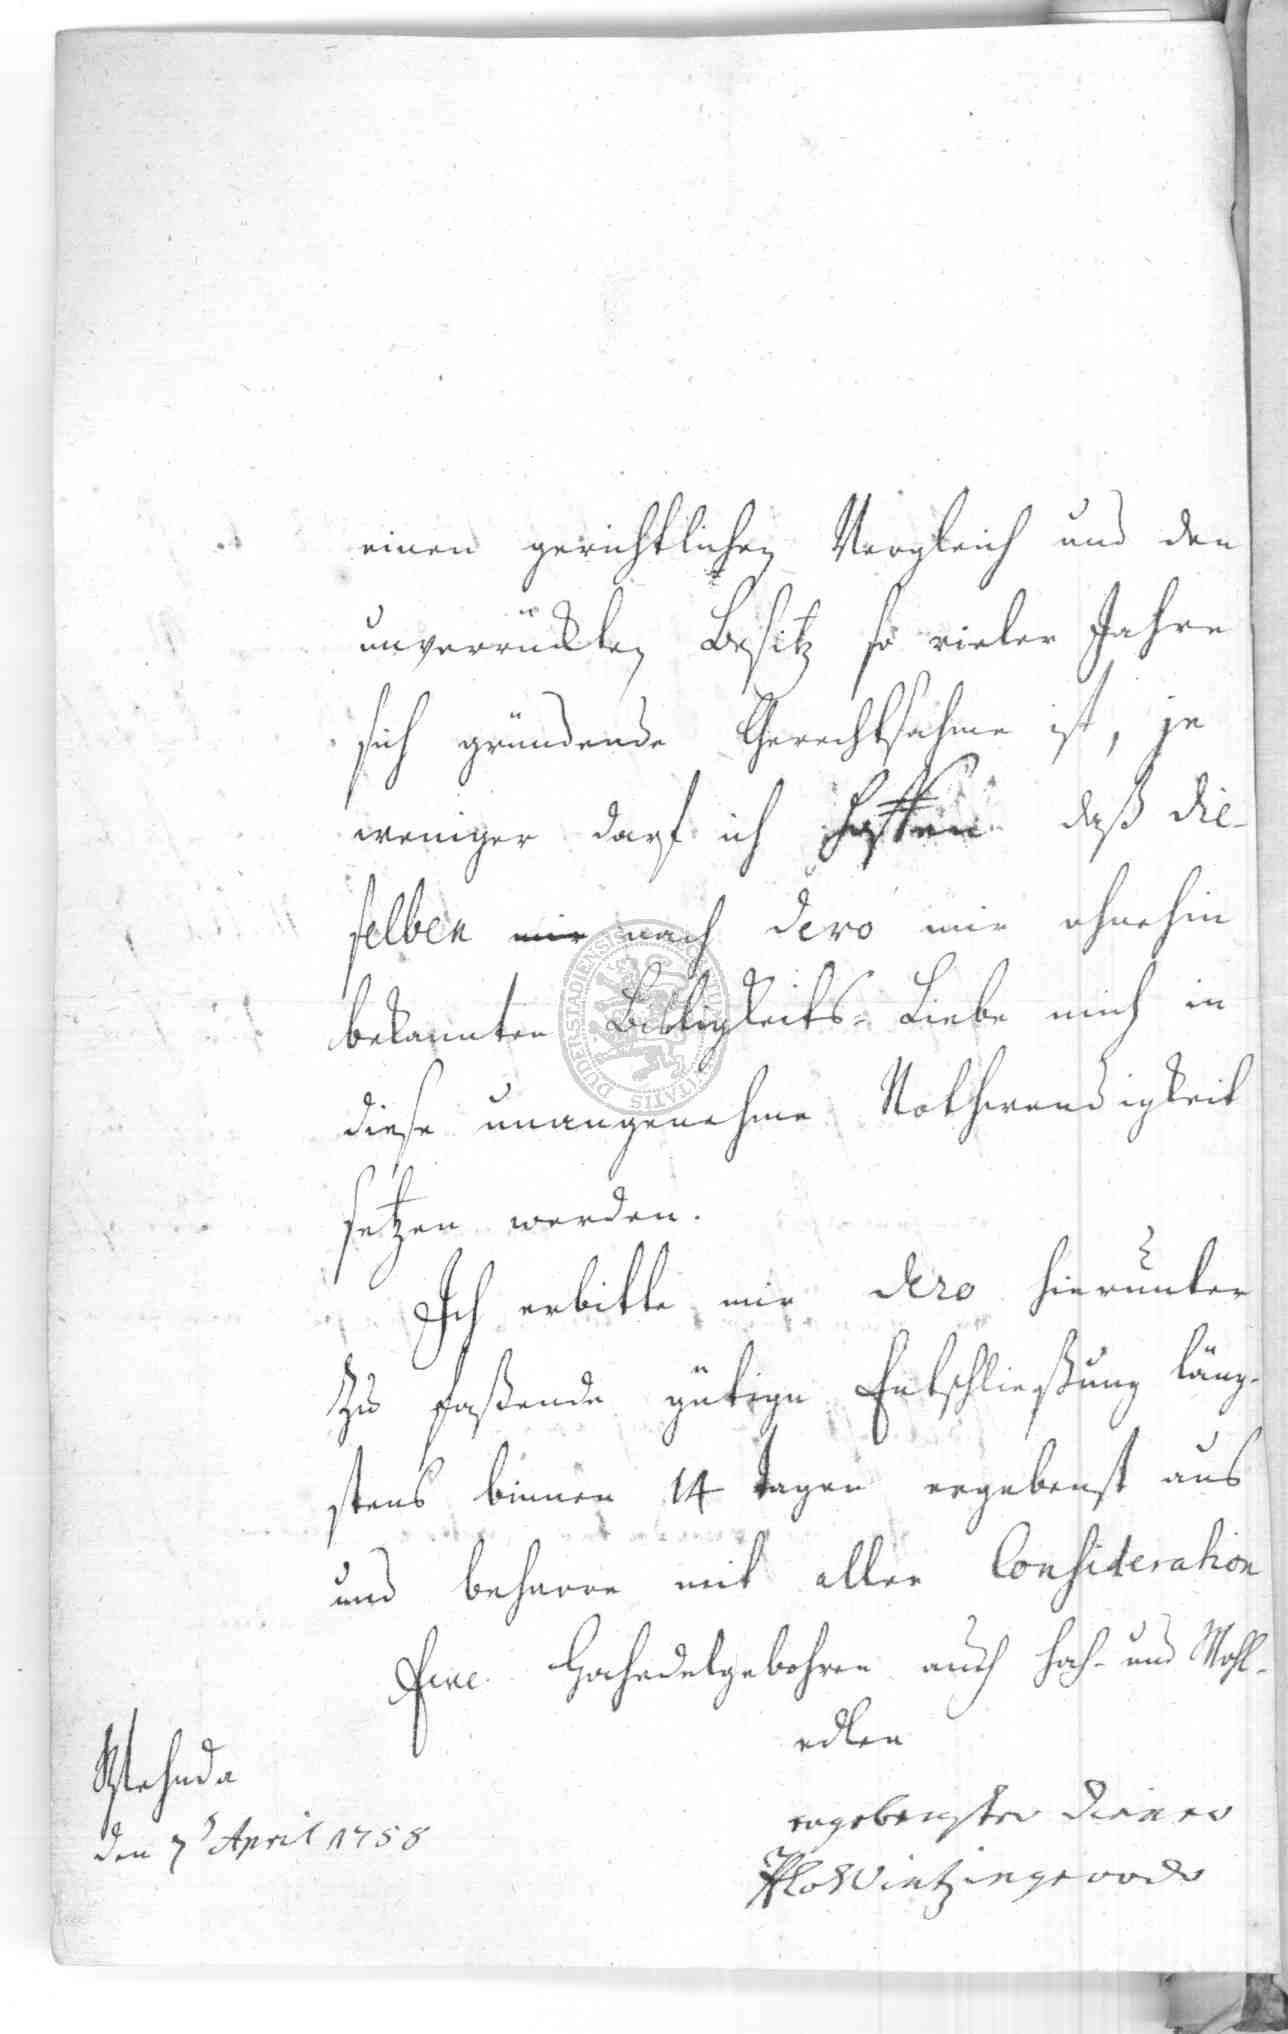 einen gerichtlichen Vergleich und den
unverrückten Besitz so vieler Jahre
sich gründende Gerechtsahme ist, je
weniger darf ich hoffen daß die-
selben mir nach dero mir ohnehin
bekannten Billigkeits-Liebe mich in
diese unangenehme Nothwendigkeit
setzen werden.
Ich erbitte mir dero hierunter
zu faßende gütige Entschließung läng-
stens binnen 14 tagen ergebenst aus
und beharre mit aller Consideration
Ewe. Hochedelgebohren auch hoch- und Wohl-
edlen
Wehnda
den 7t April 1758
ergebenster Diener
Wintzingerode
DUDERSTADIENSIS